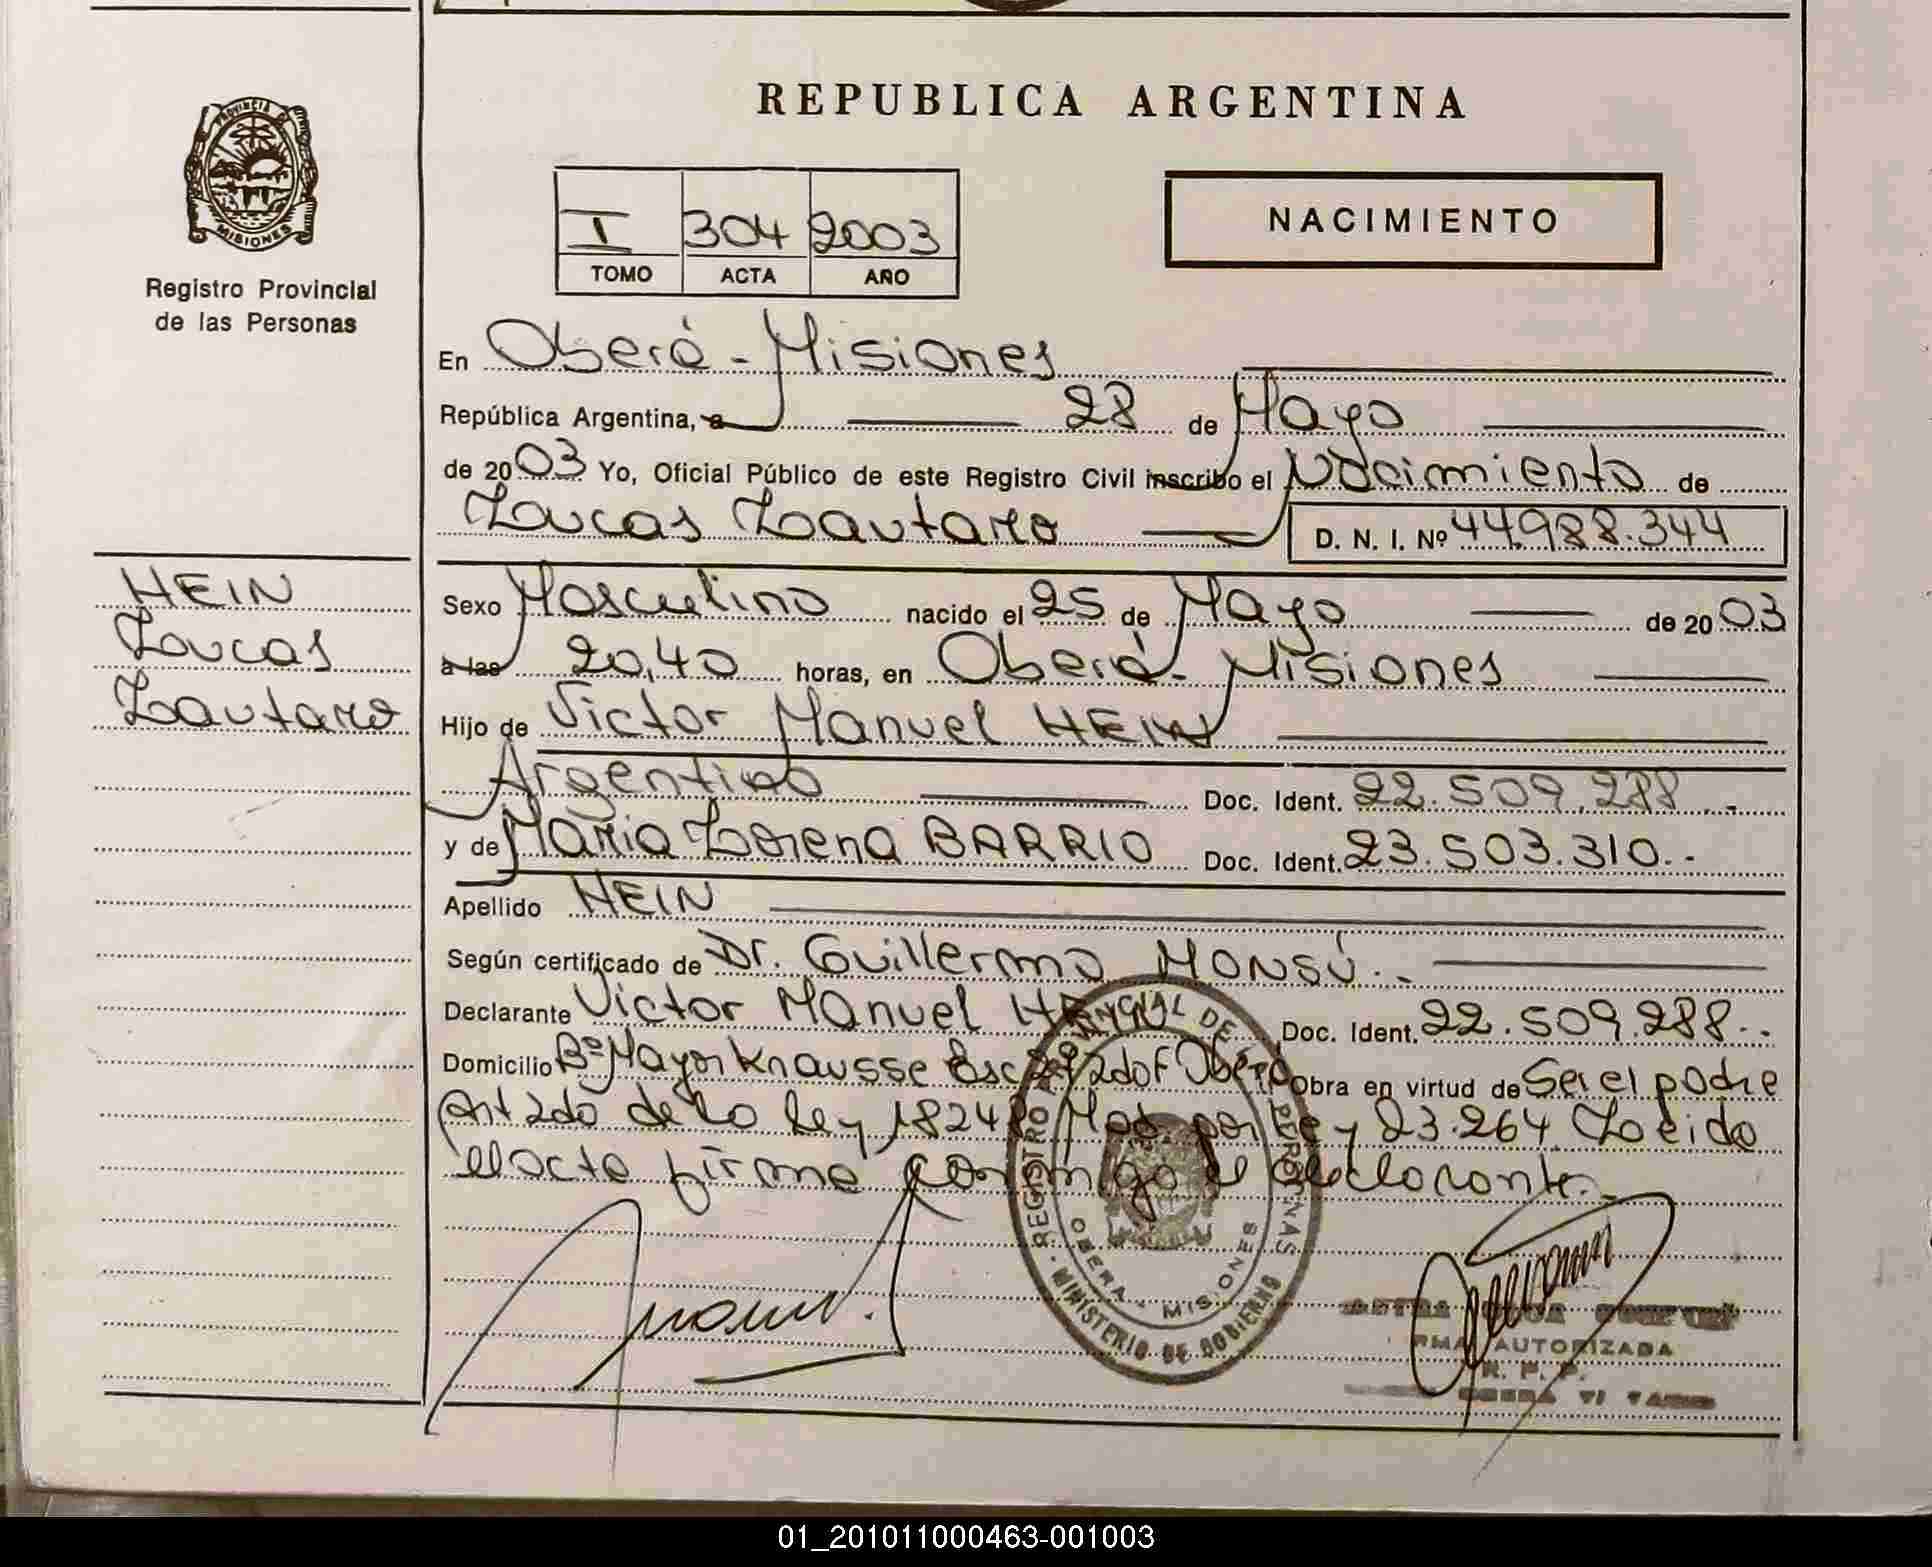 REPUBLICA ARGENTINA
PROVINCIA DE
MISIONES
Registro Provincial
de las Personas
I 304 2003
TOMO ACTA AÑO
NACIMIENTO
En Oberá - Misiones
República Argentina, a 28 de Mayo
de 2003 Yo, Oficial Público de este Registro Civil inscribo el Nacimiento de
Lucas Lautaro D. N. I. Nº 44.988.344
HEIN
Lucas
Lautaro
Sexo Masculino nacido el 25 de Mayo de 2003
a las 20,40 horas, en Oberá - Misiones
Hijo de Victor Manuel HEIN
Argentino Doc. Ident. 22.509.288.-
y de Maria Lorena BARRIO Doc. Ident. 23.503.310.-
Apellido HEIN
Según certificado de Dr. Guillermo MONSÚ.-
Declarante Victor Manuel HEIN Doc. Ident. 22.509.288.-
Domicilio Bº Mayor Knausse Esc Oberá Obra en virtud de Ser el padre
Art 2do de la Ley 18248 Mod por Ley 23.264 Leida
el acta firma conmigo el declarante.-
REGISTRO PROVINCIAL DE PERSONAS
OBERA - MISIONES
- MINISTERIO DE GOBIERNO
AUTORIZADA
R. P. P.
01_201011000463-001003